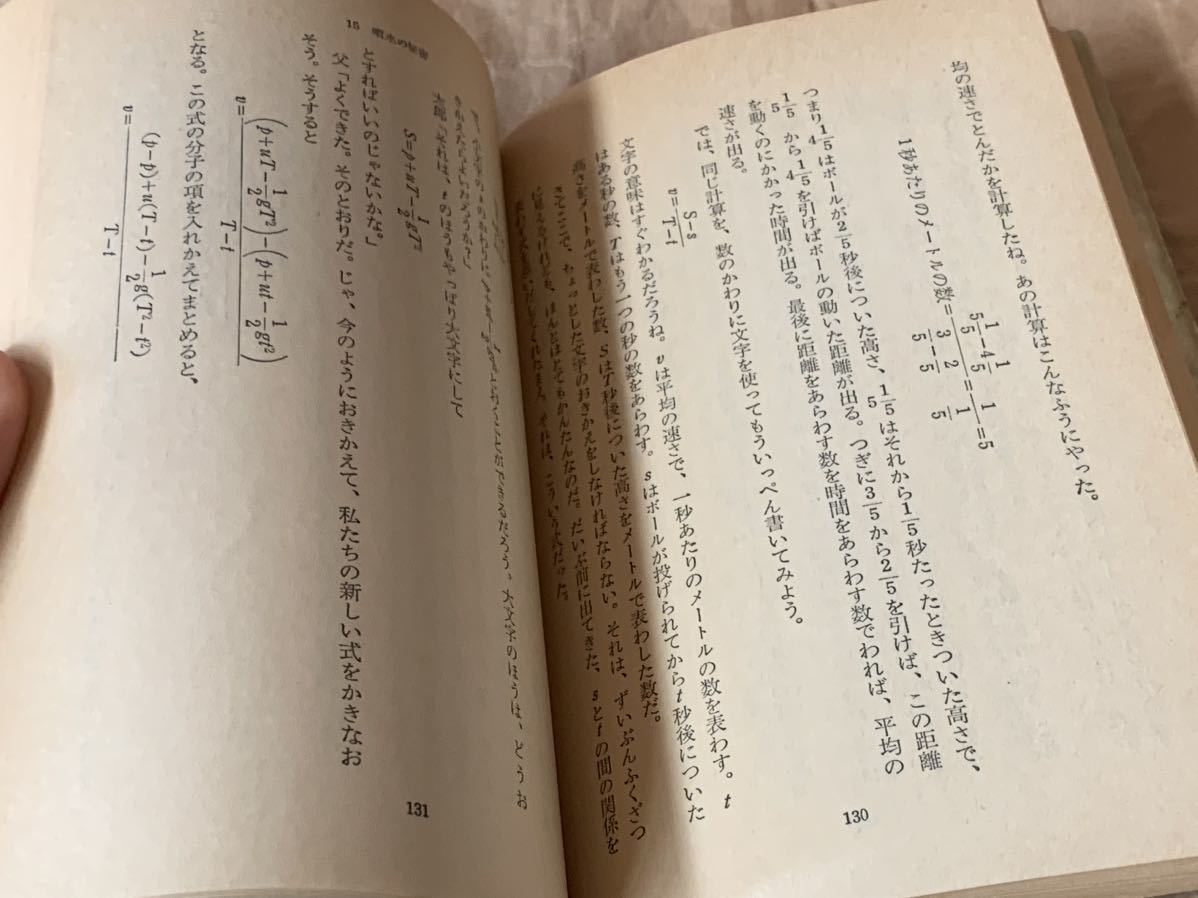 均の速さでとんだかを計算したね。あの計算はこんなふうにやった。
1秒あたりのメートルの数=(5 1/5 − 4 1/5)/(3/5 − 2/5)=1/(1/5)=5
つまり4 1/5はボールが2/5秒後についた高さ、5 1/5はそれから1/5秒たったときついた高さで、
5 1/5から4 1/5を引けばボールの動いた距離が出る。つぎに3/5から2/5を引けば、この距離
を動くのにかかった時間が出る。最後に距離をあらわす数を時間をあらわす数でわれば、平均の
速さが出る。
では、同じ計算を、数のかわりに文字を使ってもういっぺん書いてみよう。
v=(S−s)/(T−t)
文字の意味はすぐわかるだろうね。vは平均の速さで、一秒あたりのメートルの数を表わす。t
はある秒の数、Tはもう一つの秒の数をあらわす。sはボールが投げられてからt秒後についた
高さをメートルで表わした数、SはT秒後についた高さをメートルで表わした数だ。
さてここで、ちょっとした文字のおきかえをしなければならない。それは、ずいぶんふくざつ
に見えるけれども、ほんとはとてもかんたんなのだ。だいぶ前に出てきた、sとtの間の関係を
こういう式だった。
130
15 噴水の秘密
とおくことができるだろう。大文字のほうは、どうお
きかえたらよいだろうか?」
太郎「それは、tのほうもやっぱり大文字にして
S=p+uT−1/2gT²
とすればいいのじゃないかな。」
父「よくできた。そのとおりだ。じゃ、今のようにおきかえて、私たちの新しい式をかきなお
そう。そうすると
v=((p+uT−1/2gT²)−(p+ut−1/2gt²))/(T−t)
となる。この式の分子の項を入れかえてまとめると、
v=((p−p)+u(T−t)−1/2g(T²−t²))/(T−t)
131